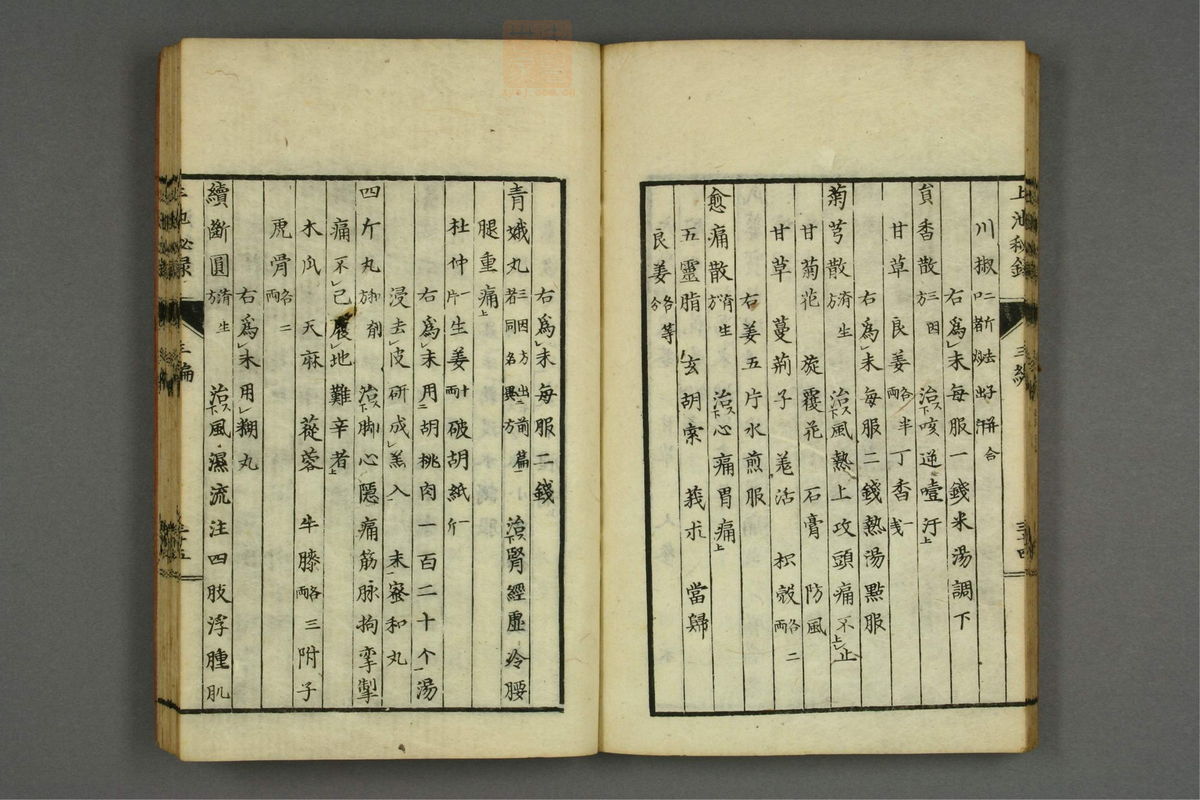 上池秘錄 三編 三十四
川椒 二兩 去子 幷合口者 炒出汗
右爲末每服一錢米湯調下
丁香散 三因方 治咳逆噎汗
甘草 良姜 各半兩 丁香 一戔
右爲末每服二錢熱湯點服
菊芎散 濟生方 治風熱上攻頭痛不止
甘菊花 旋覆花 石膏 防風
甘草 蔓荊子 羗活 枳殼 各二兩
右姜五片水煎服
愈痛散 濟生方 治心痛胃痛
五靈脂 玄胡索 莪朮 當歸
良姜 各等分
右爲末每服二錢
青娥丸 三因方出前篇若同名異方 治腎經虛冷腰
腿重痛
杜仲 一斤 生姜 十兩 破胡紙 一斤
右爲末用胡桃肉一百二十个湯
浸去皮研成羔入末蜜和丸
四斤丸 和劑方 治脚心隱痛筋脉拘攣掣
痛不已履地難辛者
木瓜 天麻 蓯蓉 牛膝 各三兩 附子
虎骨 各二兩
右爲末用糊丸
續斷圓 濟生方 治風濕流注四肢浮腫肌
上池秘錄 三編 三十五